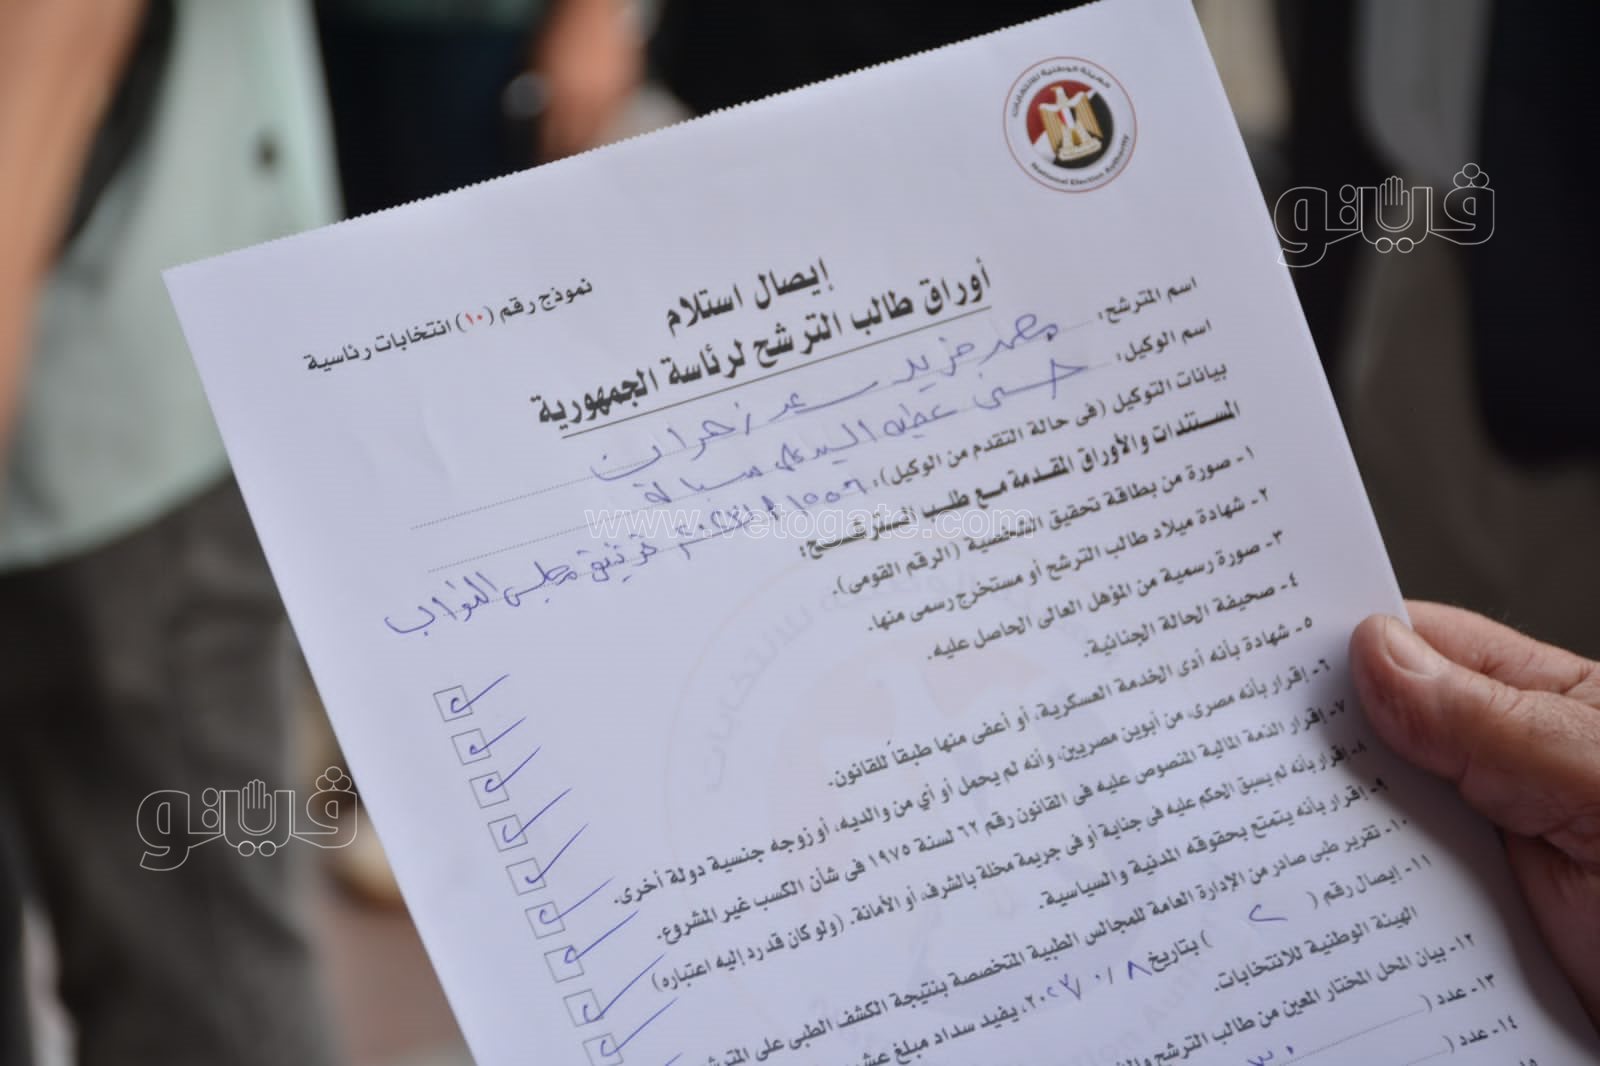 الهيئة الوطنية للانتخابات
National Election Authority
نموذج رقم (١٠) انتخابات رئاسية
إيصال استلام
أوراق طالب الترشح لرئاسة الجمهورية
اسم المترشح: محمد فريد سعد زهران
اسم الوكيل: حسنى عطيه السيد على سبالة
بيانات التوكيل (فى حالة التقدم من الوكيل): توثيق مجلس النواب
المستندات والأوراق المقدمة مع طلب الترشح:
١- صورة من بطاقة تحقيق الشخصية (الرقم القومى).
٢- شهادة ميلاد طالب الترشح أو مستخرج رسمى منها.
٣- صورة رسمية من المؤهل العالى الحاصل عليه.
٤- صحيفة الحالة الجنائية.
٥- شهادة بأنه أدى الخدمة العسكرية، أو أعفى منها طبقاً للقانون.
٦- إقرار بأنه مصرى، من أبوين مصريين، وأنه لم يحمل أو أي من والديه، أو زوجه جنسية دولة أخرى.
٧- إقرار الذمة المالية المنصوص عليه فى القانون رقم ٦٢ لسنة ١٩٧٥ فى شأن الكسب غير المشروع.
٨- إقرار بأنه لم يسبق الحكم عليه فى جناية أو فى جريمة مخلة بالشرف، أو الأمانة. (ولو كان قد رد إليه اعتباره)
٩- إقرار بأنه يتمتع بحقوقه المدنية والسياسية.
١٠- تقرير طبى صادر من الإدارة العامة للمجالس الطبية المتخصصة بنتيجة الكشف الطبى على
١١- إيصال رقم ( ٢ ) بتاريخ ، يفيد سداد مبلغ
الهيئة الوطنية للانتخابات.
١٢- بيان المحل المختار المعين من طالب الترشح
١٣- عدد (
١٤- عدد (
١٥-
ڤيتو
www.vetogate.com
ڤيتو